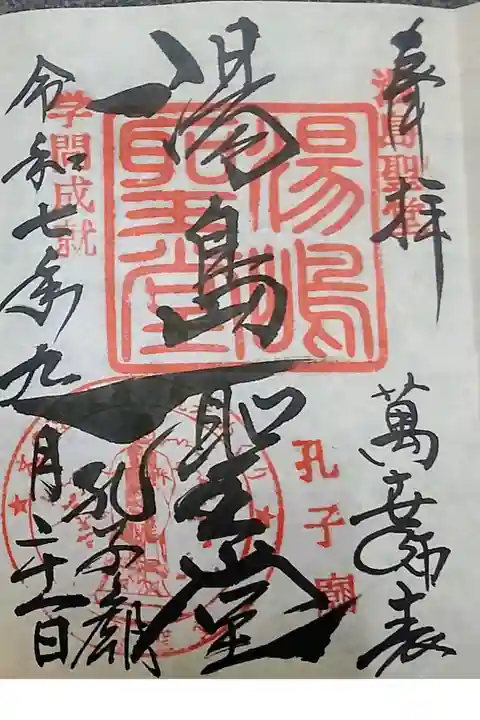 奉拝
萬世師表
湯島聖堂
孔子廟
湯島聖堂
湯島聖堂
孔子廟
学問成就
令和七年九月二十一日